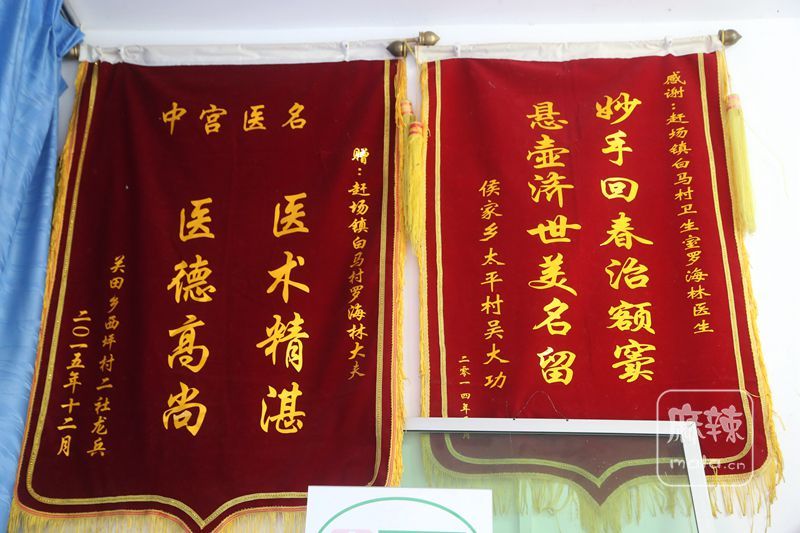 中宫医名
赠：赶场镇白马村罗海林大夫
医术精湛
医德高尚
关田乡西坪村二社龙兵
二〇一五年十二月
感谢：赶场镇白马村卫生室罗海林医生
妙手回春治额窦
悬壶济世美名留
侯家乡太平村吴大功
二零一四年
月
麻辣
mala.cn